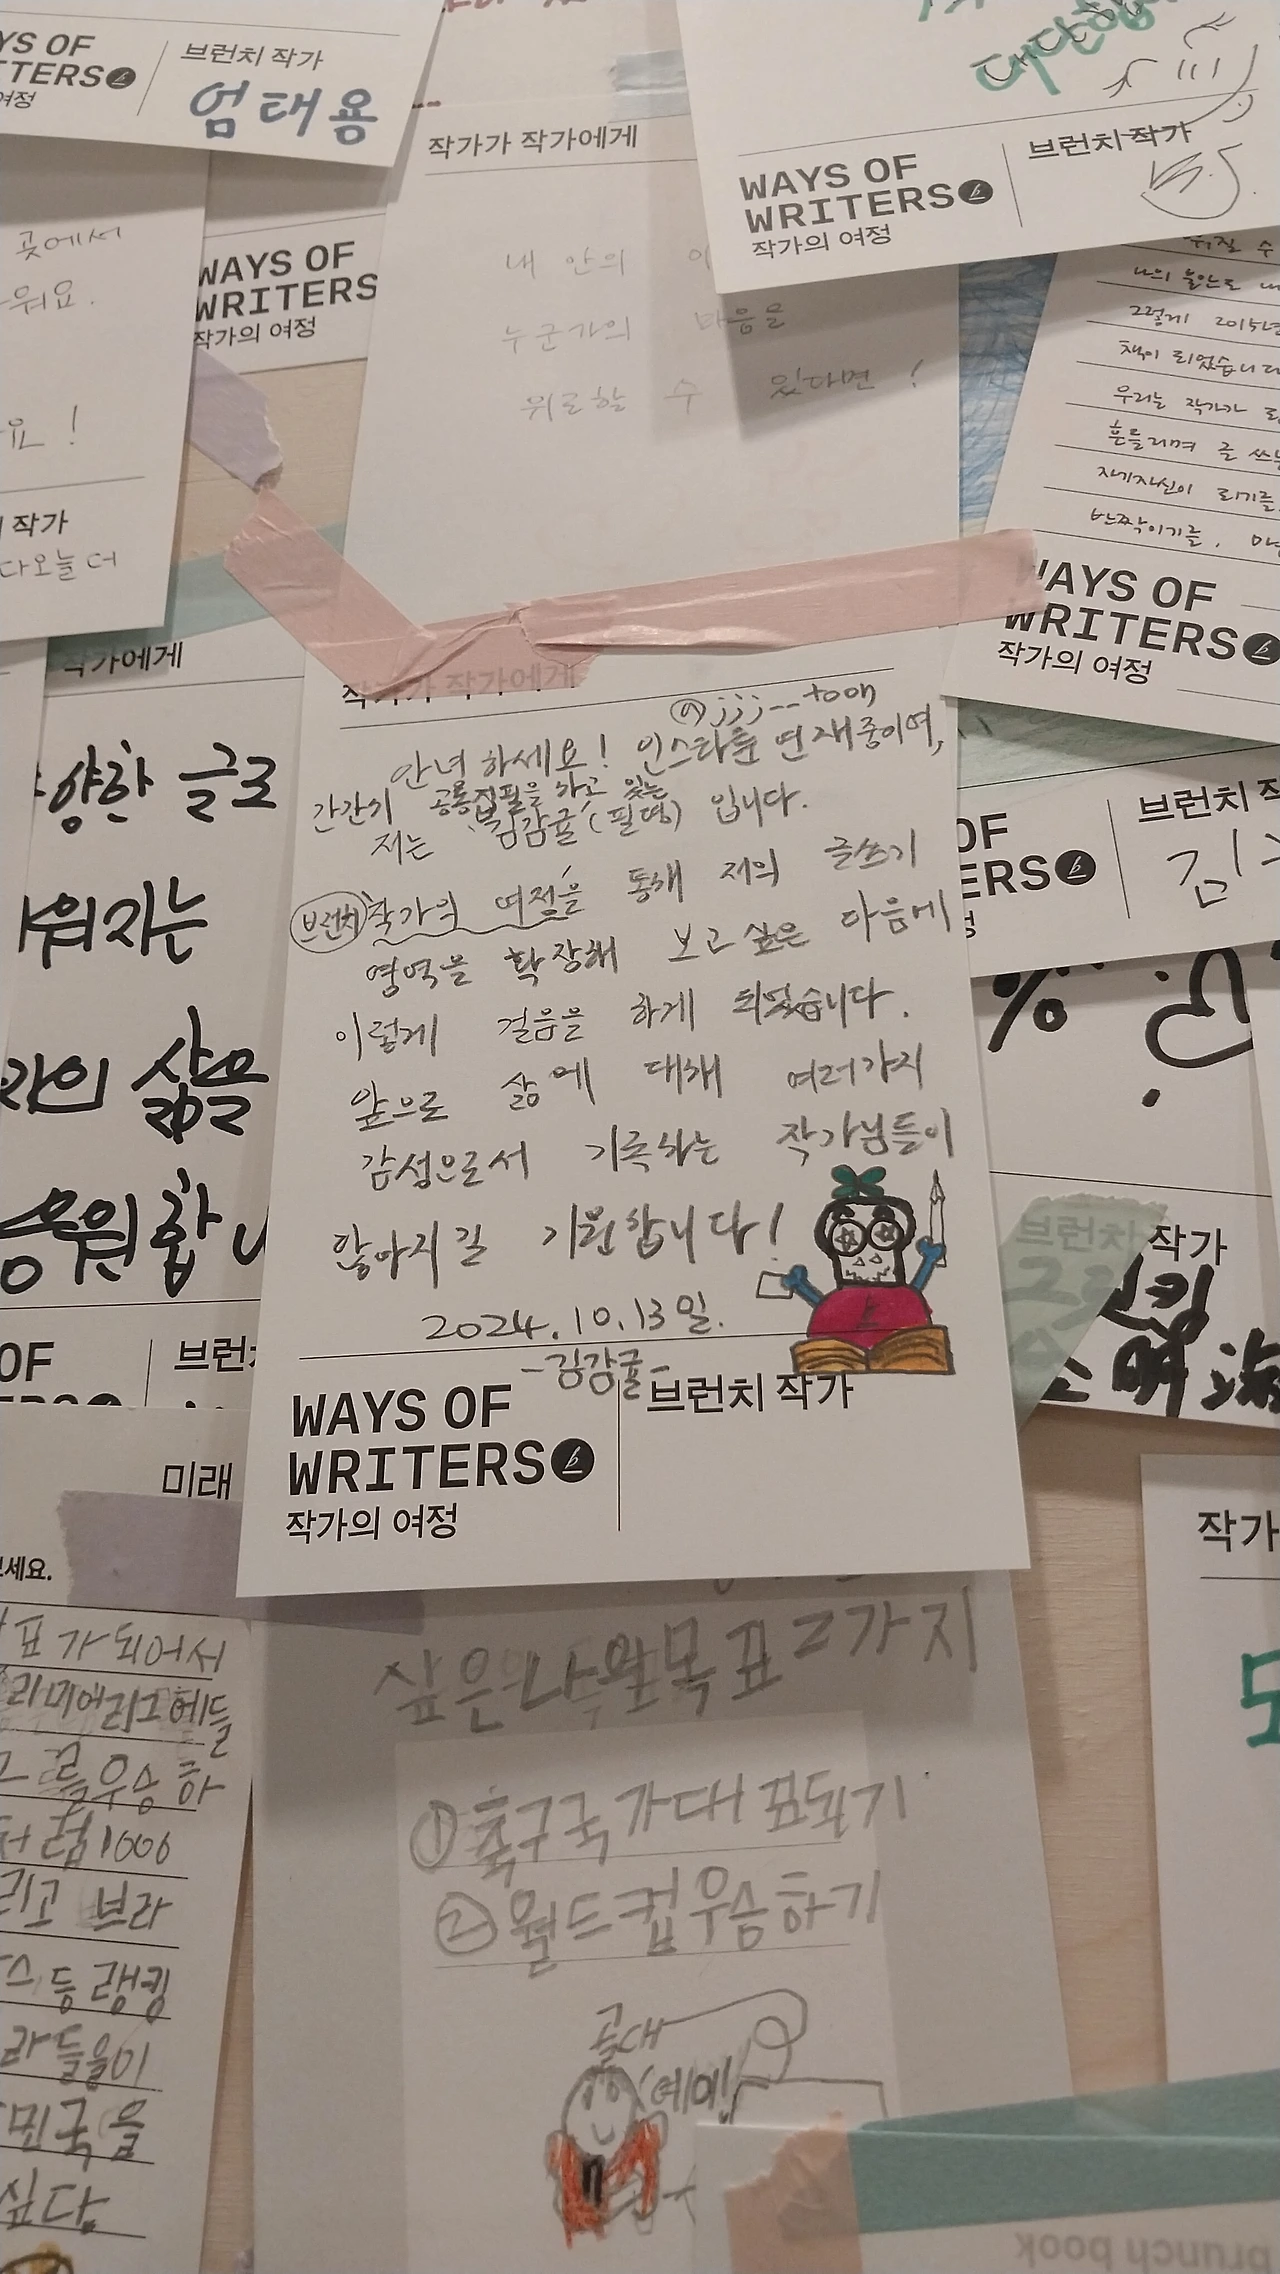 YS OF
TTERS
여정
브런치 작가
엄태용
작가가 작가에게
내 안의
누군가의 마음을
위로할 수 있다면!
대단한
WAYS OF
WRITERS
작가의 여정
브런치 작가
곳에서
워요.
요!
작가
다오늘 더
WAYS OF
WRITERS
작가의 여정
나의 불안도
그렇게 2015년
책이 되었습니다
우리는 작가가
흔들리며 글 쓰
자기자신이 되기를
반짝이기를.
WAYS OF
WRITERS
작가의 여정
작가에게
양한 글로
워지는
삶을
응원합
OF
브런
작가가 작가에게
@jjj__toon
안녕하세요! 인스타툰 연재중이며,
간간히 공동집필을 하고 있는
저는 '김감귤'(필명) 입니다.
브런치 작가의 여정을 통해 저의 글쓰기
영역을 확장해 보고싶은 마음에
이렇게 걸음을 하게 되었습니다.
앞으로 삶에 대해 여러가지
감성으로서 기록하는 작가님들이
많아지길 기원합니다!
2024.10.13일.
-김감귤-
WAYS OF
WRITERS
작가의 여정
브런치 작가
OF
ERS
브런치
김
브런치 작가
미래
세요.
표가되어서
리미어리그에들
를우승하
컵1000
리고 브라
스등 랭킹
라들을이
민국을
싶다.
싶은 나와목표2가지
①축구국가대표되기
②월드컵우승하기
골대
(예에!
작가
brunch book